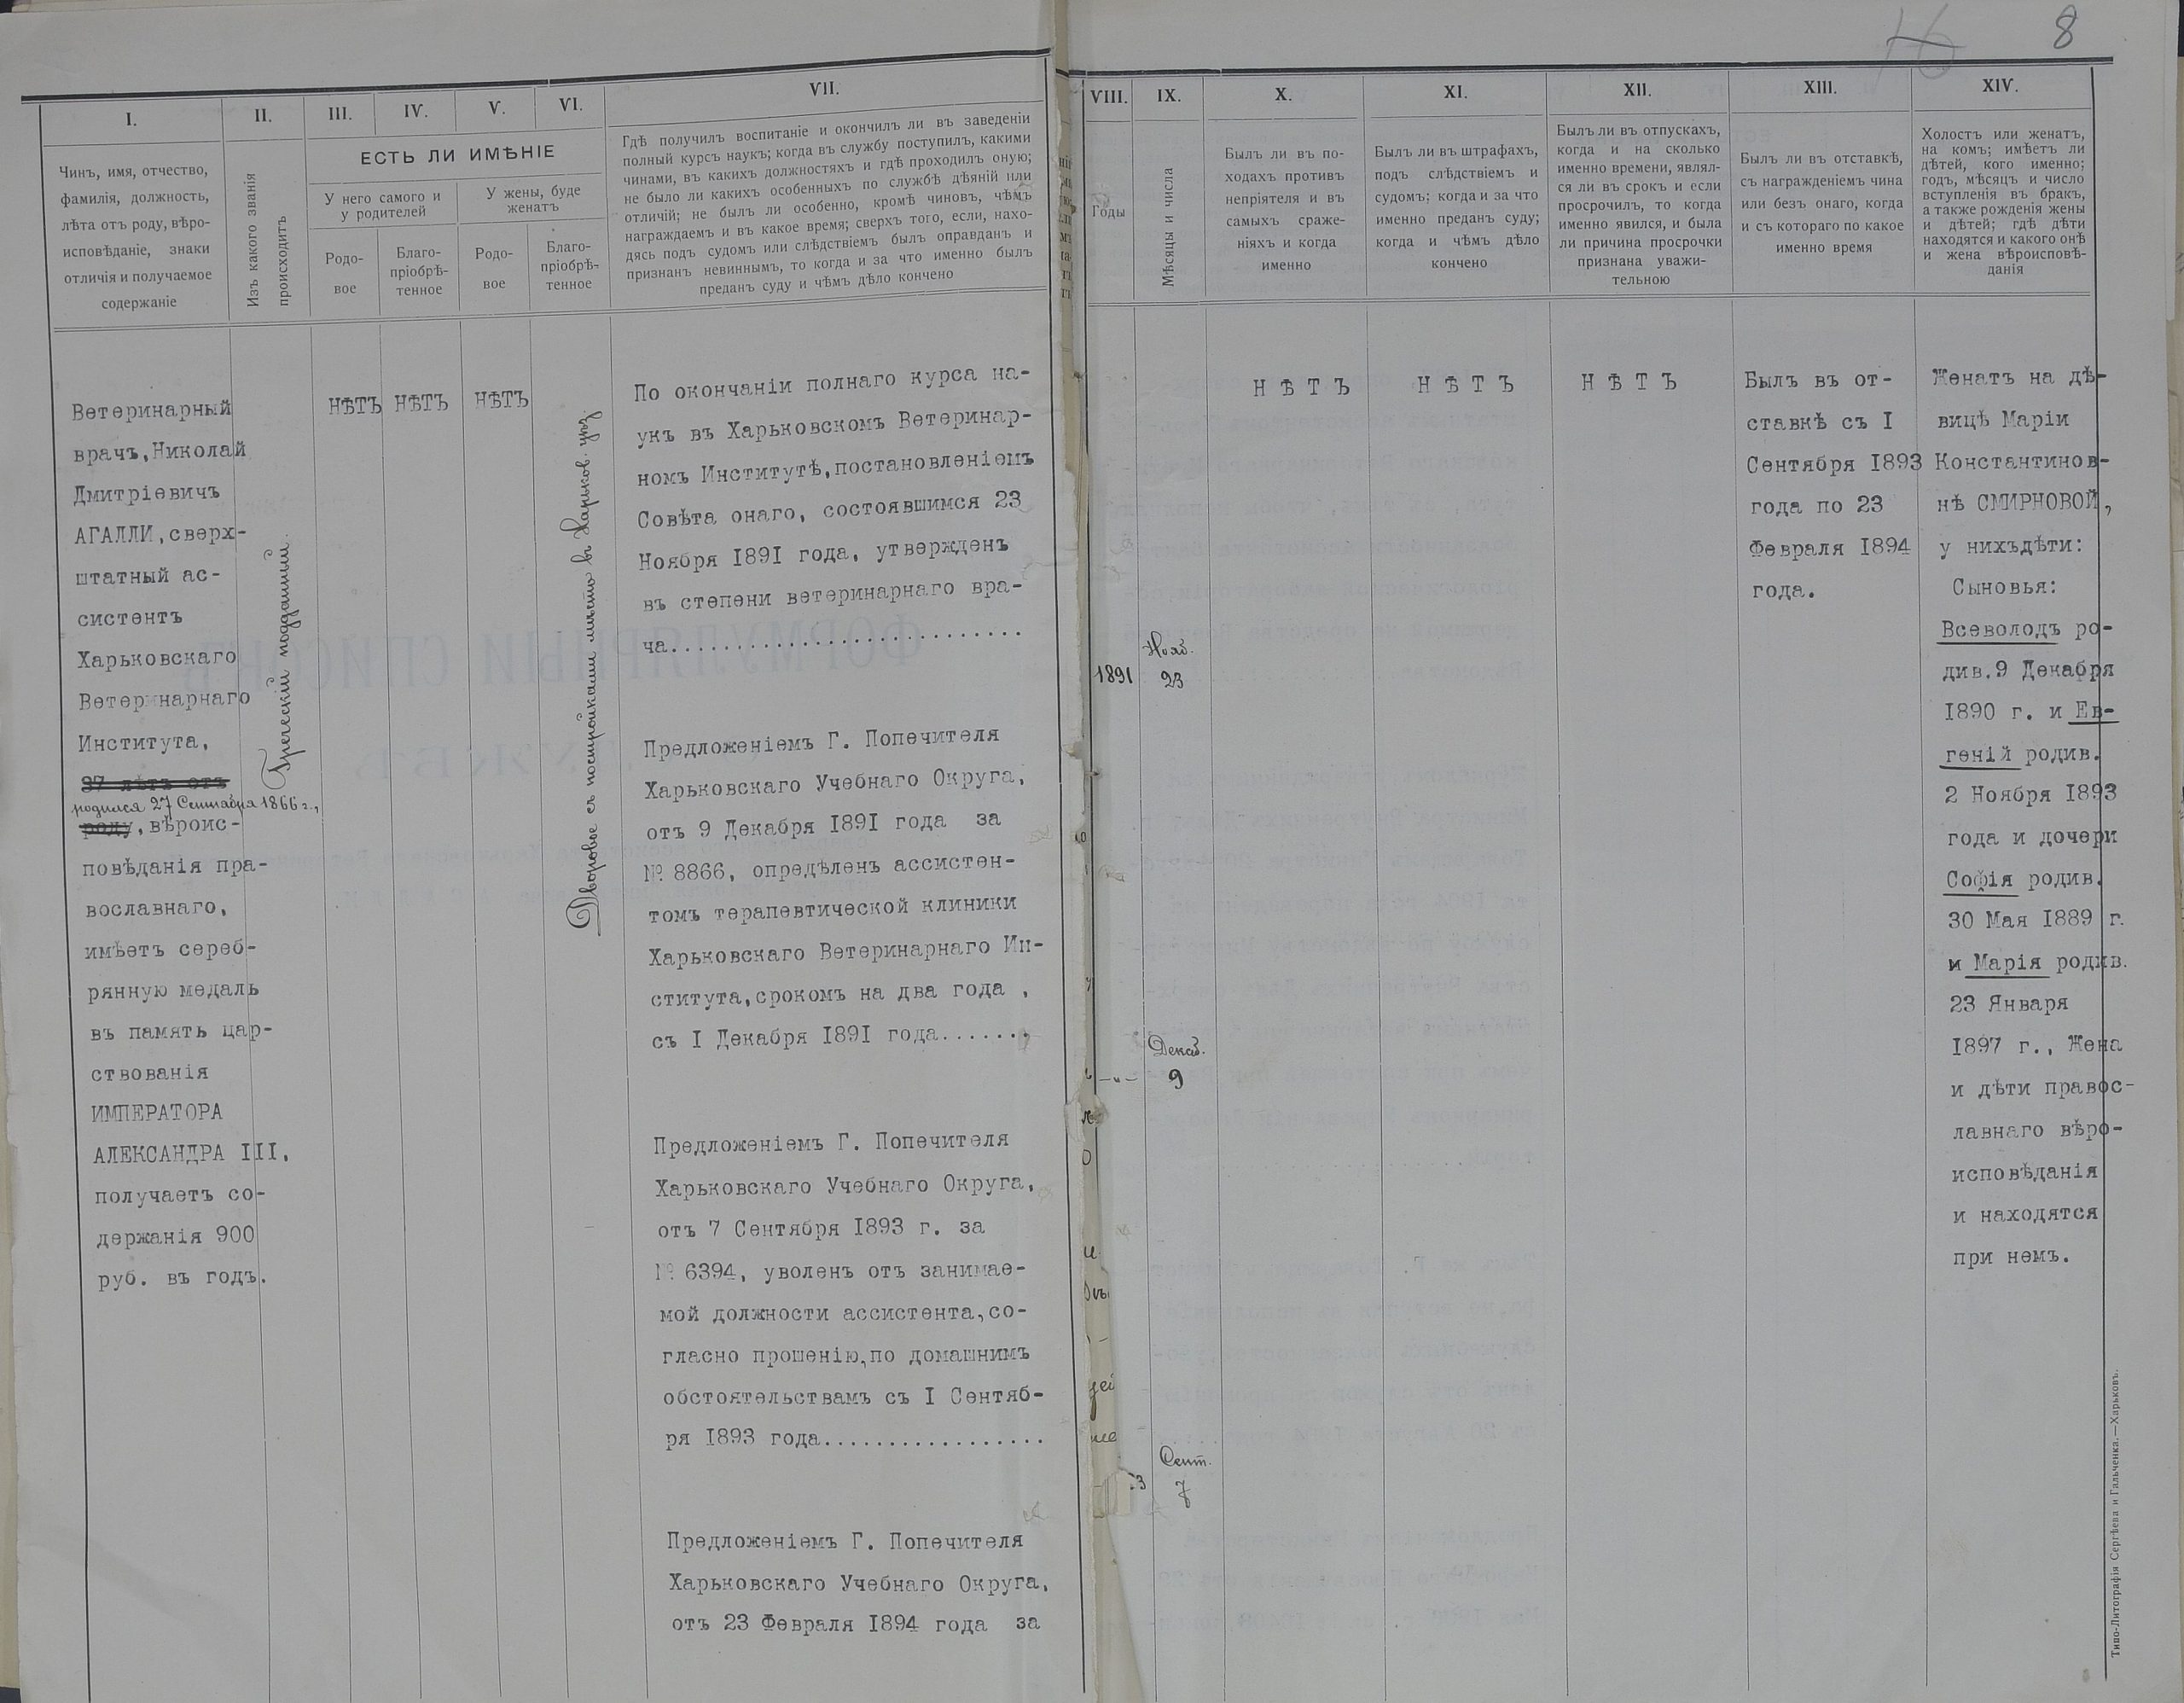 16 8
I.
Чинъ, имя, отчество,
фамилія, должность,
лѣта отъ роду, вѣро-
исповѣданіе, знаки
отличія и получаемое
содержаніе
II.
Изъ какого званія
происходитъ
III. IV. V. VI.
ЕСТЬ ЛИ ИМѢНІЕ
У него самого и
у родителей
У жены, буде
женатъ
Родо-
вое
Благо-
пріобрѣ-
тенное
Родо-
вое
Благо-
пріобрѣ-
тенное
VII.
Гдѣ получилъ воспитаніе и окончилъ ли въ заведеніи
полный курсъ наукъ; когда въ службу поступилъ, какими
чинами, въ какихъ должностяхъ и гдѣ проходилъ оную;
не было ли какихъ особенныхъ по службѣ дѣяній или
отличій; не былъ ли особенно, кромѣ чиновъ, чѣмъ
награждаемъ и въ какое время; сверхъ того, если, нахо-
дясь подъ судомъ или слѣдствіемъ былъ оправданъ и
признанъ невиннымъ, то когда и за что именно былъ
преданъ суду и чѣмъ дѣло кончено
VIII.
Годы
IX.
Мѣсяцы и числа
X.
Былъ ли въ по-
ходахъ противъ
непріятеля и въ
самыхъ сраже-
ніяхъ и когда
именно
XI.
Былъ ли въ штрафахъ,
подъ слѣдствіемъ и
судомъ; когда и за что
именно преданъ суду;
когда и чѣмъ дѣло
кончено
XII.
Былъ ли въ отпускахъ,
когда и на сколько
именно времени, являл-
ся ли въ срокъ и если
просрочилъ, то когда
именно явился, и была
ли причина просрочки
признана уважи-
тельною
XIII.
Былъ ли въ отставкѣ,
съ награжденіемъ чина
или безъ онаго, когда
и съ котораго по какое
именно время
XIV.
Холостъ или женатъ,
на комъ; имѣетъ ли
дѣтей, кого именно;
годъ, мѣсяцъ и число
вступленія въ бракъ,
а также рожденія жены
и дѣтей; гдѣ дѣти
находятся и какого онѣ
и жена вѣроисповѣ-
данія
Ветеринарный
врачъ, Николай
Дмитріевичъ
АГАЛЛИ, сверх-
штатный ас-
систентъ
Харьковскаго
Ветеринарнаго
Института,
37 лѣтъ отъ
родился 27 Сентября 1866 г.,
роду, вѣроис-
повѣданія пра-
вославнаго,
имѣетъ сереб-
рянную медаль
въ память цар-
ствованія
ИМПЕРАТОРА
АЛЕКСАНДРА III,
получаетъ со-
держанія 900
руб. въ годъ.
Греческій подданный.
НѢТЪ НѢТЪ НѢТЪ
Дворовое съ постройками мѣсто въ Харьков. уѣз.
По окончаніи полнаго курса на-
укъ въ Харьковскомъ Ветеринар-
номъ Институтѣ, постановленіемъ
Совѣта онаго, состоявшимся 23
Ноября 1891 года, утвержденъ
въ степени ветеринарнаго вра-
ча...........................
Предложеніемъ Г. Попечителя
Харьковскаго Учебнаго Округа,
отъ 9 Декабря 1891 года за
№ 8866, опредѣленъ ассистен-
томъ терапевтической клиники
Харьковскаго Ветеринарнаго Ин-
ститута, срокомъ на два года ,
съ I Декабря 1891 года.......
Предложеніемъ Г. Попечителя
Харьковскаго Учебнаго Округа,
отъ 7 Сентября 1893 г. за
№ 6394, уволенъ отъ занимае-
мой должности ассистента, со-
гласно прошенію, по домашнимъ
обстоятельствамъ съ I Сентяб-
ря 1893 года.................
Предложеніемъ Г. Попечителя
Харьковскаго Учебнаго Округа,
отъ 23 Февраля 1894 года за
1891
Нояб.
23
—"—
Декаб.
9
3
Сент.
7
НѢТЪ
НѢТЪ
НѢТЪ
Былъ въ от-
ставкѣ съ I
Сентября 1893
года по 23
Февраля 1894
года.
Женатъ на дѣ-
вицѣ Маріи
Константинов-
нѣ СМИРНОВОЙ,
у нихъдѣти:
Сыновья:
Всеволодъ ро-
див. 9 Декабря
1890 г. и Ев-
геній родив.
2 Ноября 1893
года и дочери
Софія родив.
30 Мая 1889 г.
и Марія родив.
23 Января
1897 г., Жена
и дѣти правос-
лавнаго вѣро-
исповѣданія
и находятся
при немъ.
Типо-Литографія Сергѣева и Гальченка.—Харьковъ.